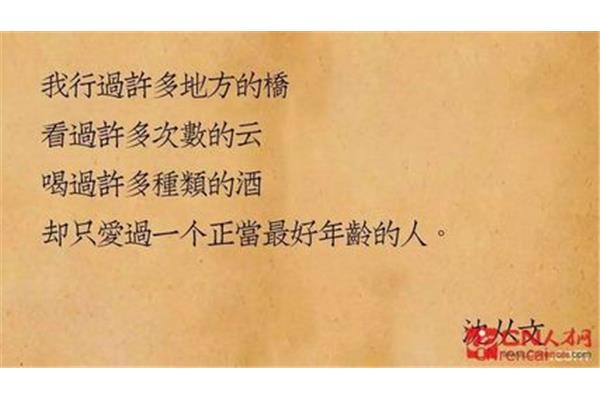 我行過許多地方的橋
看過許多次數的云
喝過許多種類的酒
却只愛過一个正當最好年齡的人。
沈从文
人才网
cnrencai.com